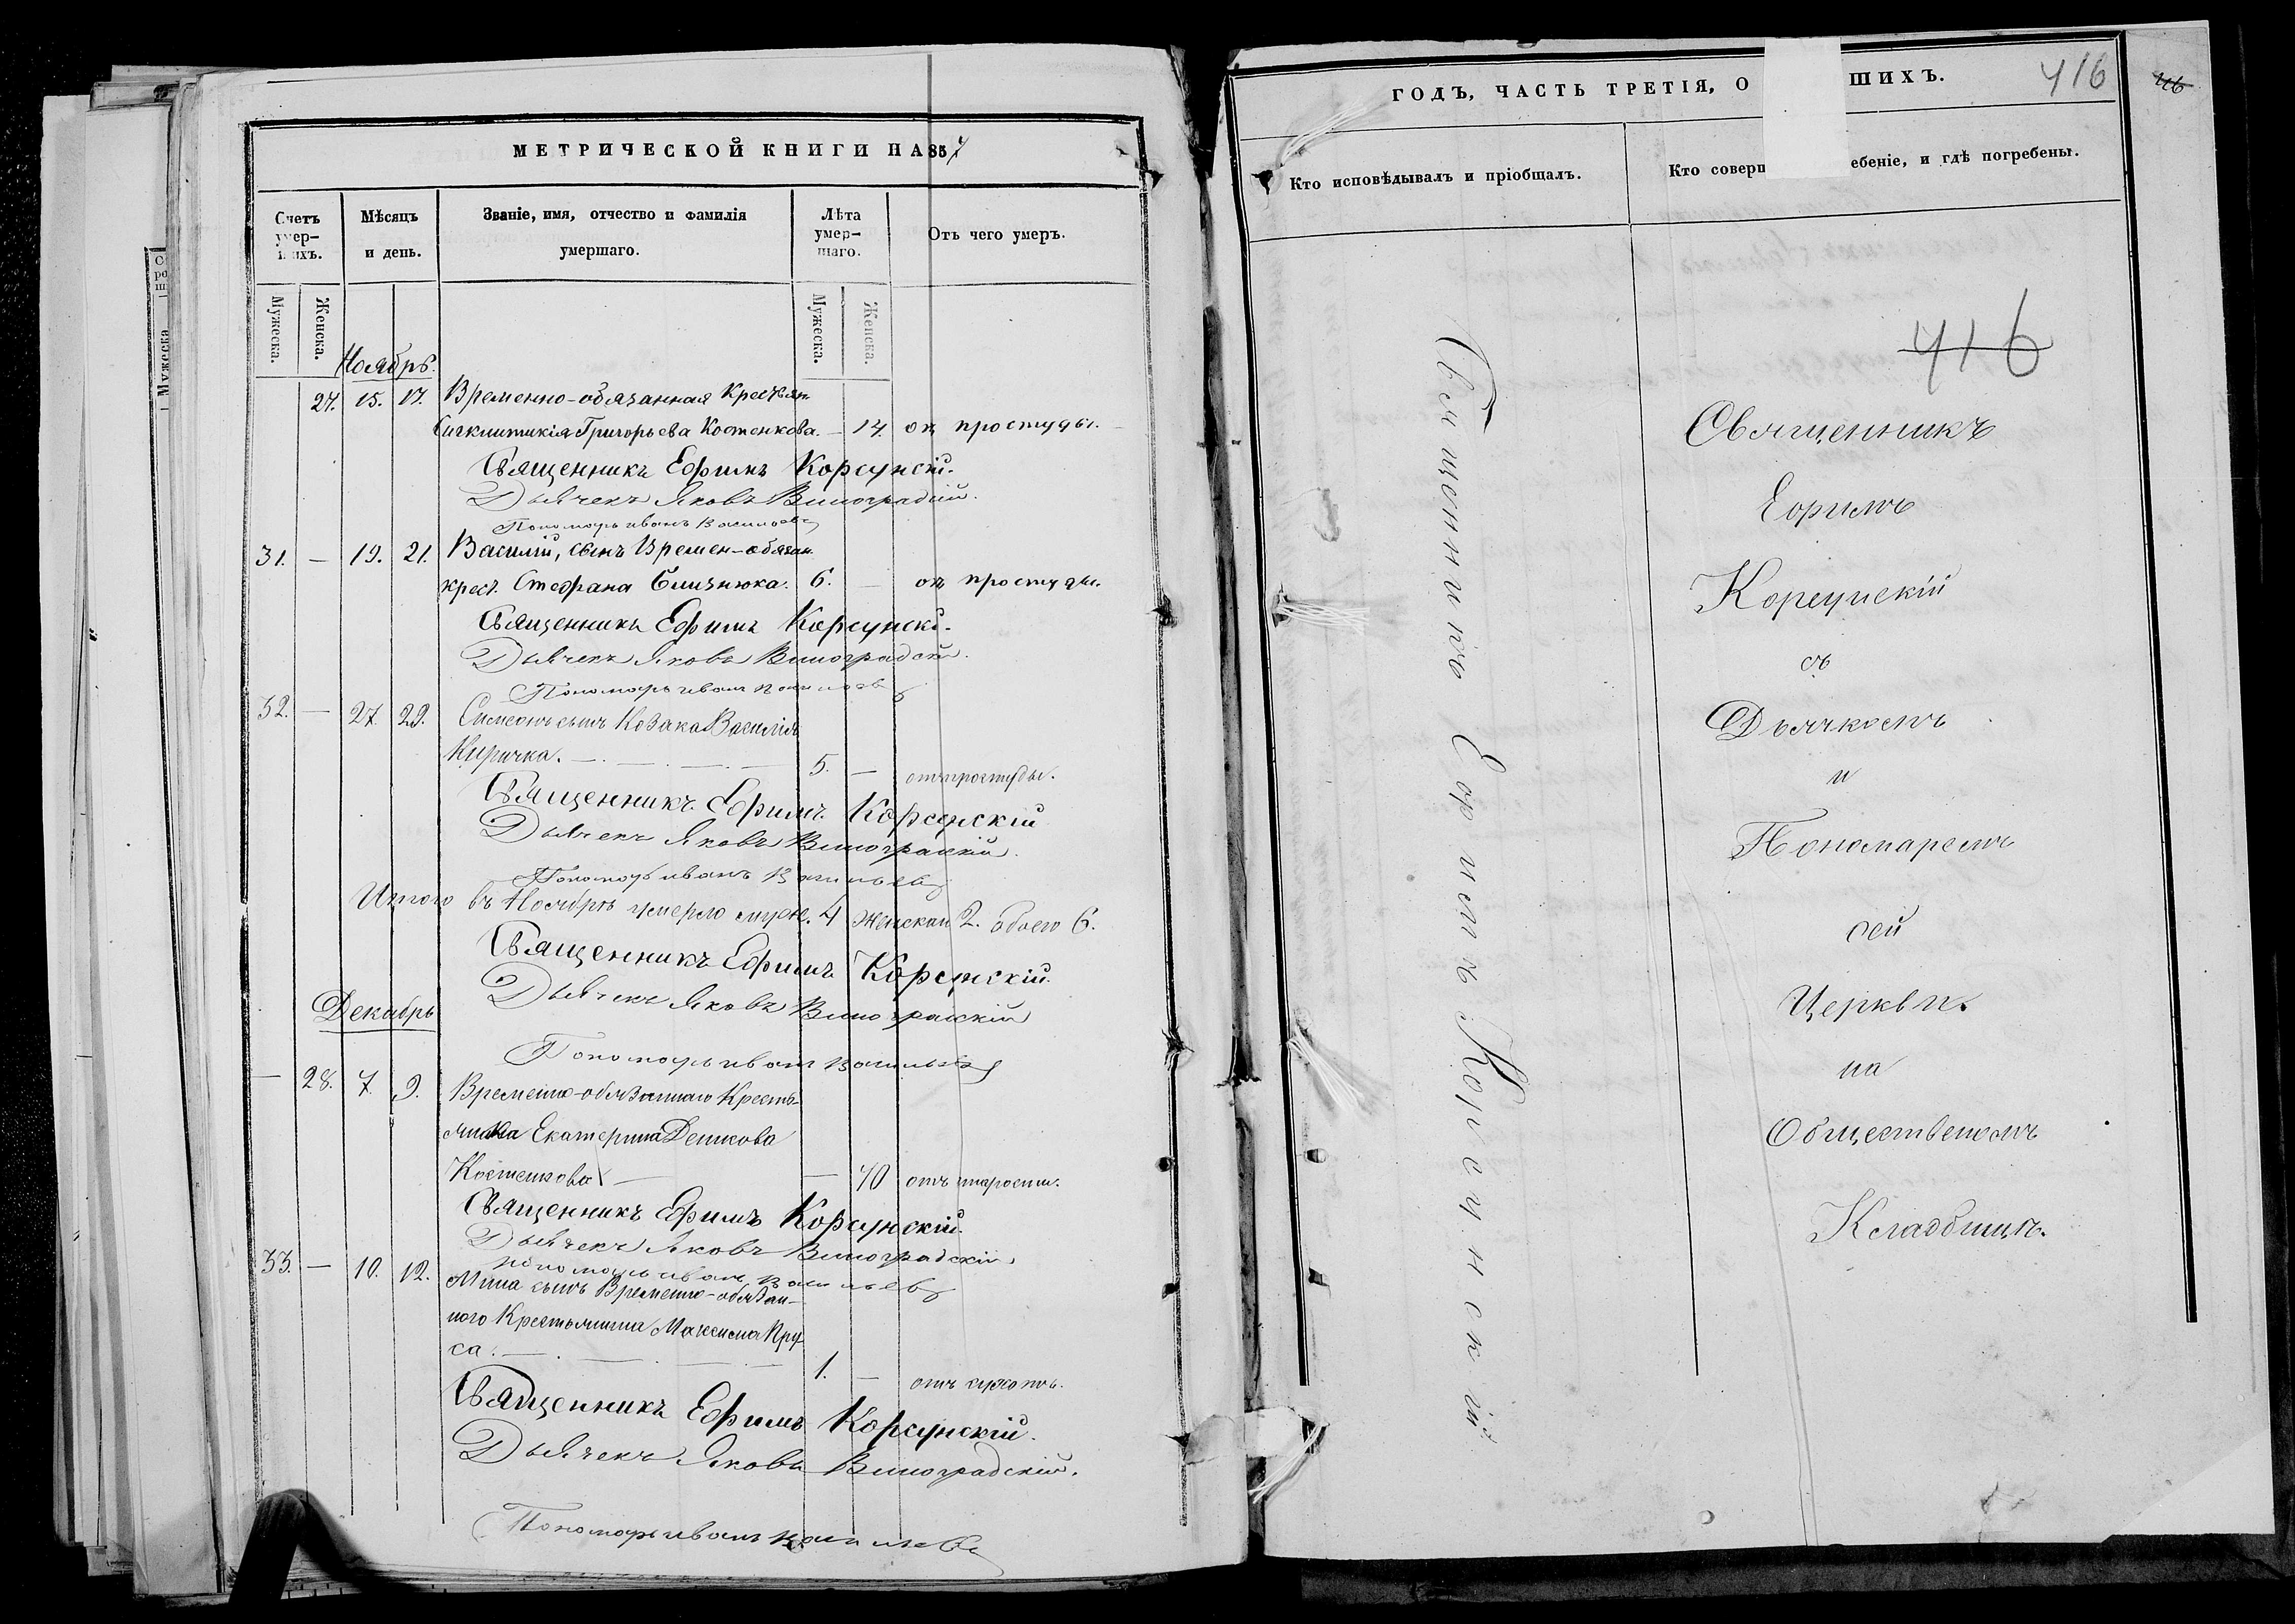 МЕТРИЧЕСКОЙ КНИГИ НА 85
Счетъ умер- шихъ.
Мѣсяцъ и день.
Званіе, имя, отчество и фамилія умершаго.
Лѣта умер- шаго.
Отъ чего умеръ.
Мужеска. Женска. Мужеска. Женска.
Ноябрь.
27. 15. 17. Временно-обязанная Крестьян.
Синклитикія Григорьева Костенкова. — 14. отъ простуды.
Священникъ Ефимъ Корсунскій.
Дьячекъ Яковъ Виноградскій.
Пономарь иванъ Васильевъ
31. — 19. 21. Василій, сынъ Времен-обязан.
крест. Стефана Близнюка. 6. — отъ простуды.
Священникъ Ефимъ Корсунскі.
Дьячекъ Яковъ Виноградскі.
Пономарь иванъ Васильевъ
32. — 27. 29. Симеонъ сынъ Козака Василія
Киричка. — 5. — отъ простуды.
Священникъ Ефимъ Корсунскій
Дьячекъ Яковъ Виноградскій.
Пономарь иванъ Васильевъ
Итого въ Ноябрѣ умерло муже. 4 женскаго 2. обоего 6.
Священникъ Ефимъ Корсунскій.
Дьячекъ Яковъ Виноградскій
Декабрь
Пономарь иванъ Васильевъ
— 28. 7. 9. Временно-обязанная Кресть-
янка Екатерина
Костенкова — 70 отъ старости.
Священникъ Ефимъ Корсунскій.
Дьячекъ Яковъ Виноградскій
Пономарь иванъ Васильевъ
33. — 10. 12. Мина сынъ Временно-обязан-
ного Крестьянина Максима Пру-
са. — 1. — отъ сухотъ.
Священникъ Ефимъ Корсунскій.
Дьячекъ Яковъ Виноградскій.
Пономарь иванъ Васильевъ
ГОДЪ, ЧАСТЬ ТРЕТІЯ, О ШИХЪ.
416
Кто исповѣдывалъ и пріобщалъ.
Кто соверш ебеніе, и гдѣ погребены.
416
Священникъ Ефимъ Корсунскій
Священникъ
Ефимъ
Корсунскій
съ
Дьячкомъ
и
Пономаремъ
сей
Церкви.
на
Общественомъ
Кладбищѣ.